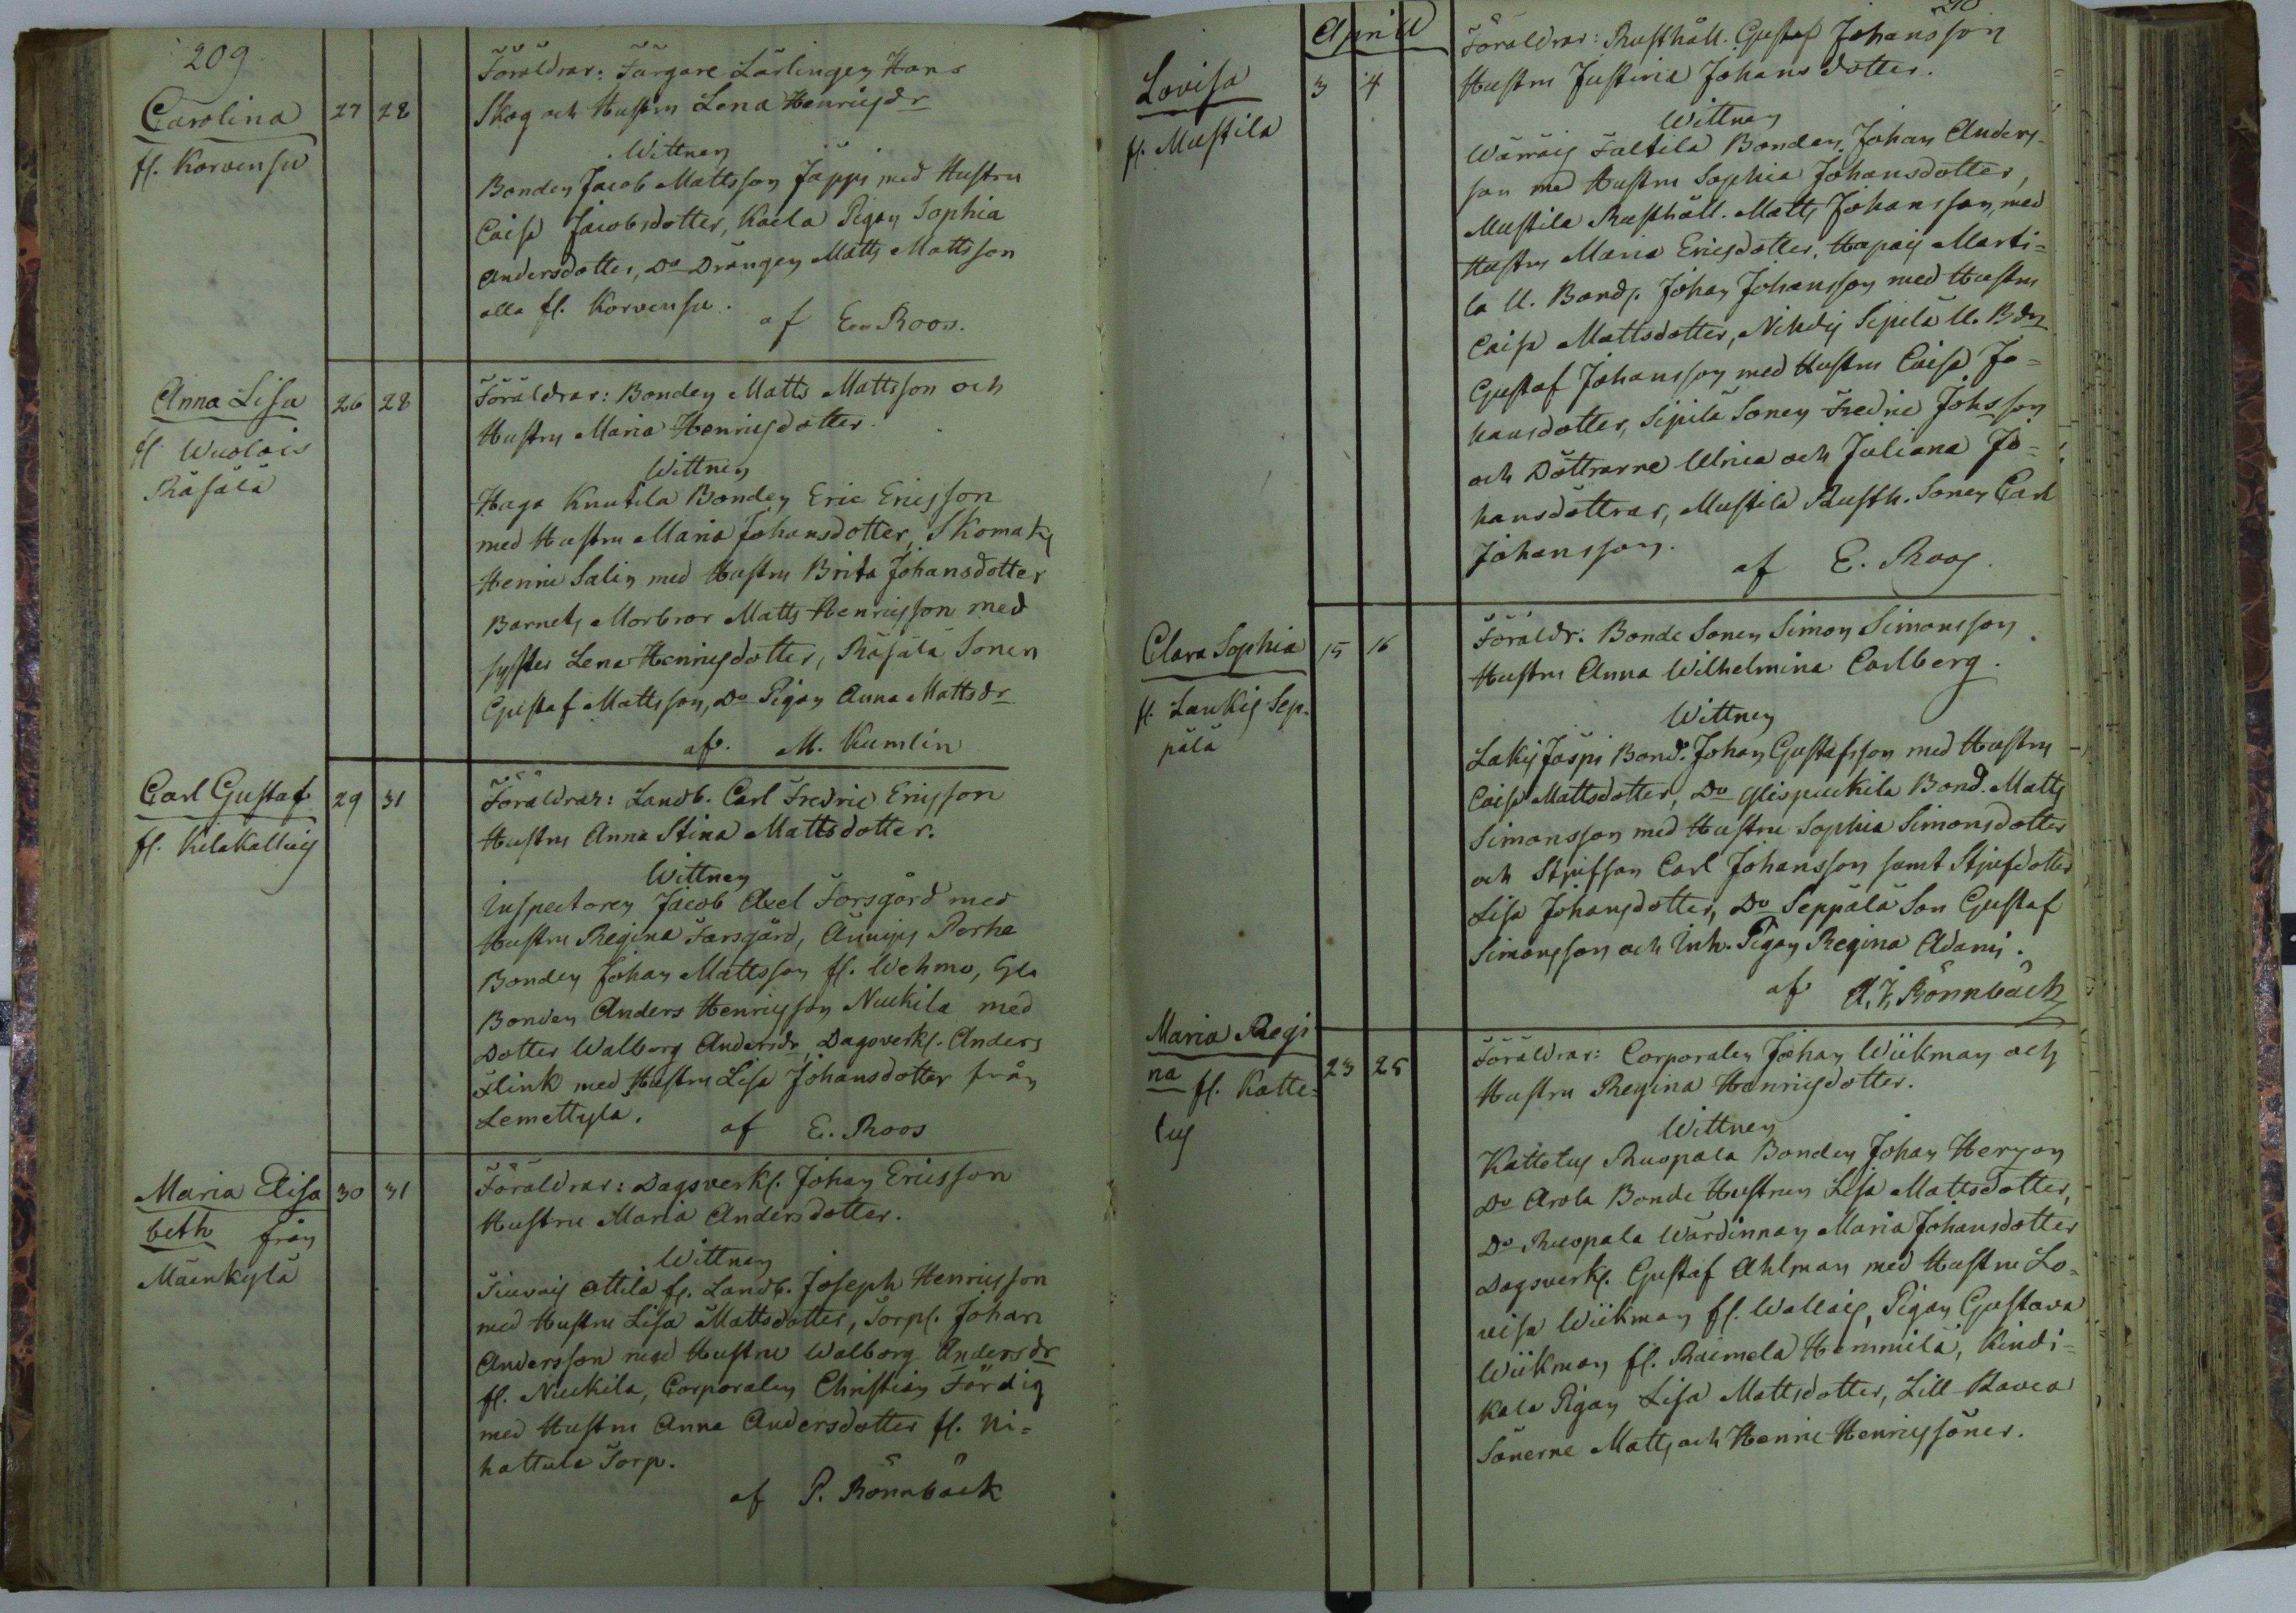 209
Carolina 27 28
fl. Korvensu
Föräldrar: Färgare Lärlingen Hans
Skog och Hustru Lena Henricsdr
Wittnen
Bonden Jacob Mattsson Jäppi med Hustru
Caisa Jacobsdotter, Kaela Pigan Sophia
Andersdotter, Do Drängen Matts Mattsson
alla fl. Korvensu.
af E. Roos.
Anna Lisa 26 28
fl. Wuolais
Räfälä
Föräldrar: Bonden Matts Mattsson och
Hustru Maria Henricsdotter.
Wittnen
Haga Knutila Bonden Eric Ericsson
med Hustru Maria Johansdotter, Skomak
Henric Salin med Hustru Brita Johansdotter
Barnets Morbror Matts Henricsson med
syster Lena Henricsdotter, Räfälä Sonen
Gustaf Mattsson, Do Pigan Anna Mattsdr
af M. Kumlin
Carl Gustaf 29 31
fl. Kilakallis
Föräldrar: Landb. Carl Fredric Ericsson
Hustru Anna Stina Mattsdotter.
Wittnen
Inspectoren Jacob Axel Forsgård med
Hustru Regina Forsgård, Perhe
Bonden Johan Mattsson fl. Wehmo, Gla
Bonden Anders Henricsson Nuckila med
Dotter Walborg Andersdr, Dagsverk. Anders
Flink med Hustru Lisa Johansdotter från
Lemettyla.
af E. Roos
Maria Elisa 30 31
beth från
Mäenkylä
Föräldrar: Dagsverk. Johan Ericsson
Hustru Maria Andersdotter.
Wittnen
Siuvais Ottila fl. Landb. Joseph Henricsson
med Hustru Lisa Mattsdotter, Torp. Johan
Andersson med Hustru Walborg Andersdr
fl. Nuckila, Corporalen Christian Färdig
med Hustru Anna Andersdotter fl. Ni=
hattula Torp.
af P. Rönnbäck
April
Lovisa 3 4
fl. Mustila
Föräldrar: Rusthåll. Gustaf Johansson
Hustru Justina Johansdotter.
Wittnen
Wärräis Faltila Bonden Johan Anders-
son med Hustru Sophia Johansdotter,
Mustila Rusthåll. Matts Johansson, med
Hustru Maria Ericsdotter, Hapais Marti=
la U. Bond. Johan Johansson med Hustru
Caisa Mattsdotter, Nihdis Sipilä U. Bdn
Gustaf Johansson med Hustru Caisa Jo=
hansdotter, Sipilä Sonen Fredric Johsson
och Döttrarne Ulrica och Juliana Jo=
hansdöttrar, Mustila Rusth. Sonen Carl
Johansson.
af E. Roos.
Clara Sophia 15 16
fl. Laukis Sep-
pälä
Föräldr: Bonde Sonen Simon Simonsson
Hustru Anna Wilhelmina Carlberg.
Wittnen
Lakis Jäspi Bond. Johan Gustafsson med Hustru
Caisa Mattsdotter, Do Ylispuckila Bond. Matts
Simonsson med Hustru Sophia Simonsdotter
och Stjufson Carl Johansson samt Stjufdotter
Lisa Johansdotter, Do Seppälä Son Gustaf
Simonsson och Inh. Pigan Regina Adami.
af A. F. Rönnbäck
Maria Regi 23 25
na fl. Katte=
lus
Föräldrar: Corporalen Johan Wiikman och
Hustru Regina Henricsdotter.
Wittnen
Kattelus Ruopala Bonden Johan Herzon
Do Arola Bonde Hustrun Lisa Mattsdotter,
Do Ruopala Wärdinnan Maria Johansdotter
Dagsverk. Gustaf Ahlman med Hustru Lo=
visa Wiikman fl. Wallais, Pigan Gustava
Wiikman fl. Raimela Hemmilä, Kindi=
kala Pigan Lisa Mattsdotter, Lill Kavea
Sönerne Matts och Henric Henricssöner.